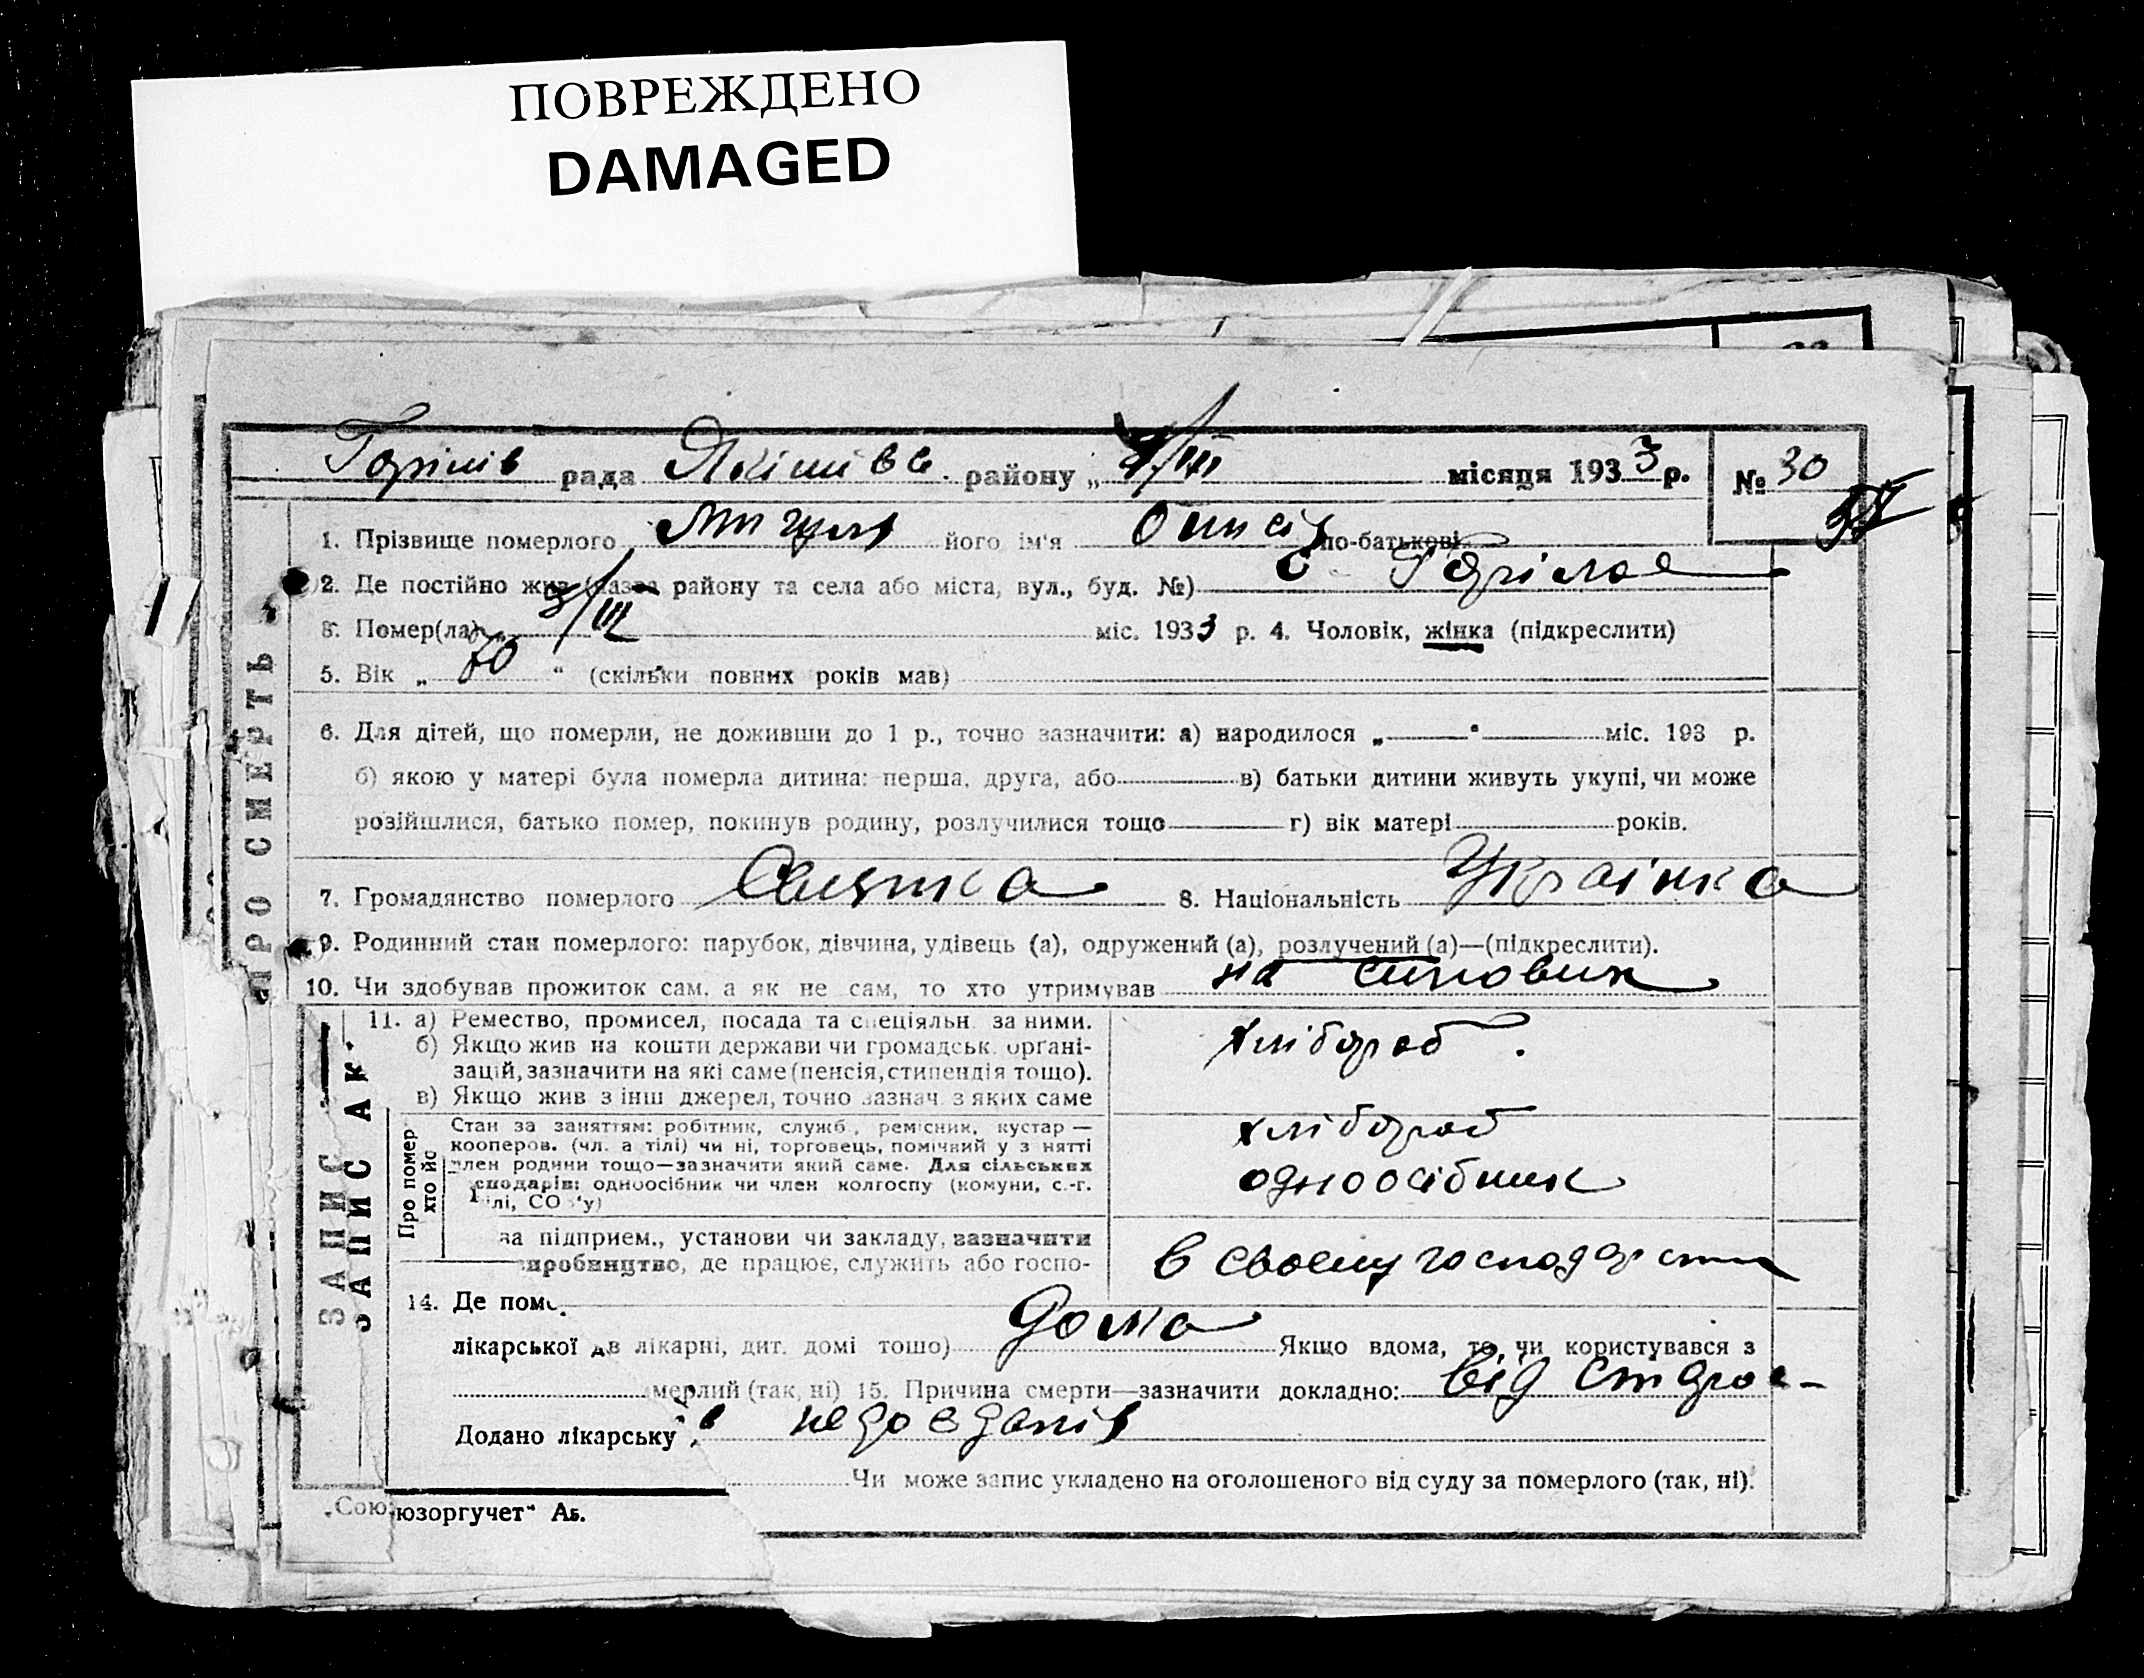 ПОВРЕЖДЕНО
DAMAGED
Горілів рада Якімівс. району „ 4/III місяця 1933 р. № 30
1. Прізвище померлого його ім'я по-батькові
2. Де постійно жив (назва району та села або міста, вул., буд. №) с Горілое
3. Помер(ла) 3/III міс. 1933 р. 4. Чоловік, жінка (підкреслити)
5. Вік „ 70 “ (скільки повних років мав)
6. Для дітей, що померли, не доживши до 1 р., точно зазначити: а) народилося „ “ міс. 193 р.
б) якою у матері була померла дитина: перша, друга, або в) батьки дитини живуть укупі, чи може
розійшлися, батько помер, покинув родину, розлучилися тощо г) вік матері років.
7. Громадянство померлого 8. Національність Українка
9. Родинний стан померлого: парубок, дівчина, удівець (а), одружений (а), розлучений (а)—(підкреслити).
10. Чи здобував прожиток сам, а як не сам, то хто утримував на
11. а) Ремество, промисел, посада та спеціяльн за ними. хлібороб.
б) Якщо жив на кошти держави чи громадськ. органі-
зацій, зазначити на які саме (пенсія, стипендія тощо).
в) Якщо жив з інш джерел, точно зазнач. з яких саме
Про помер
хто йо
Стан за заняттям: робітник, служб., ремісник, кустар — хлібороб
кооперов. (чл. а тілі) чи ні, торговець, помічний у з нятті
член родини тощо—зазначити який саме. Для сільських одноосібник
сподарів: одноосібник чи член колгоспу (комуни, с.-г.
лі, СО у)
за підприєм., установи чи закладу, зазначити в своєму господарстві
виробництво, де працює, служить або госпо-
14. Де пом
лікарської в лікарні, дит. домі тощо) дома Якщо вдома, то чи користувався з
мерлий (так, ні) 15. Причина смерти—зазначити докладно: від старое-
Додано лікарську недоєданія
Чи може запис укладено на оголошеного від суду за померлого (так, ні).
„Сою юзоргучет“ Аб.
ПРО СМЕРТЬ
ЗАПИС
ЗАПИС АК